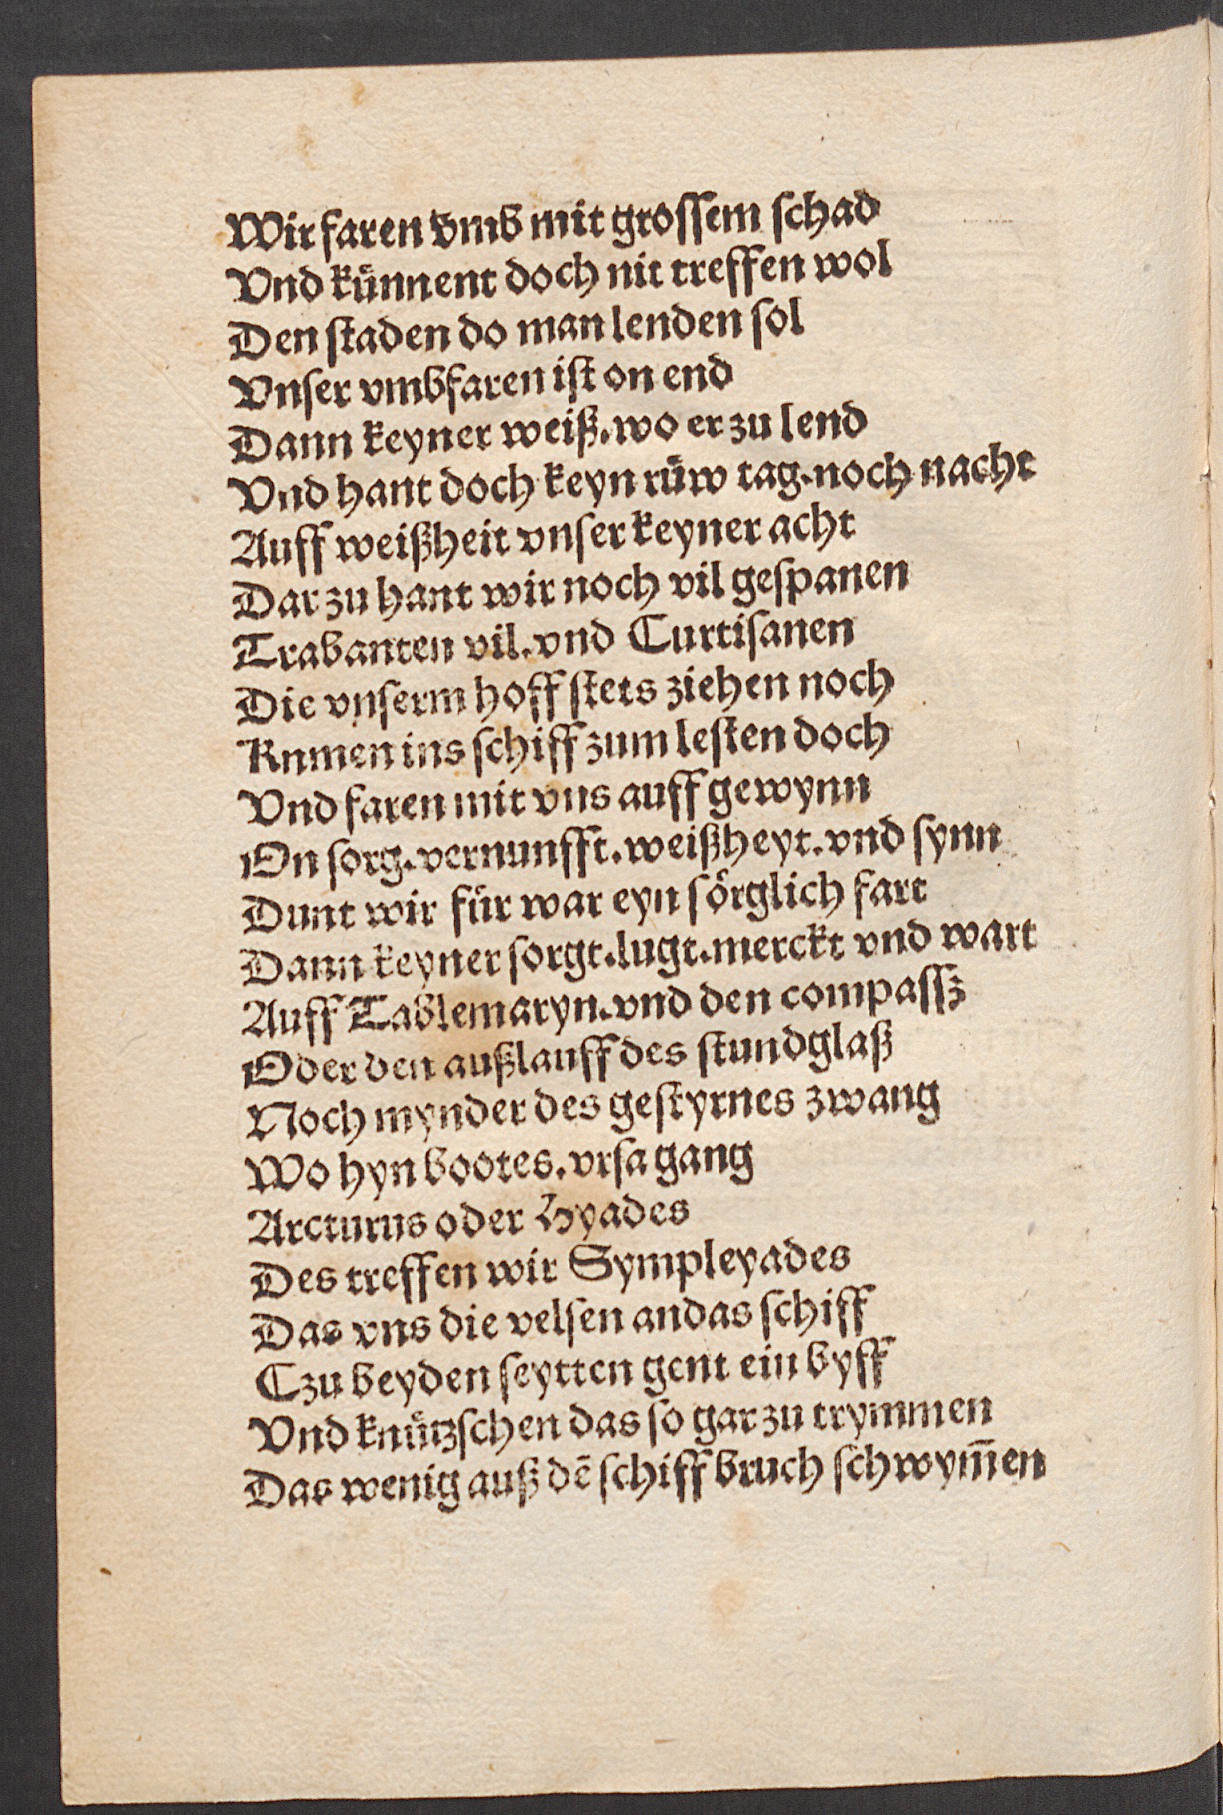 Wir faren vmb mit grossem schad
Vnd künnent doch nit treffen wol
Den staden do man lenden sol
Vnser vmbfaren ist on end
Dann keyner weiß. wo er zu lend
Vnd hant doch keyn rüw tag. noch nacht
Auff weißheit vnser keyner acht
Dar zu hant wir noch vil gespanen
Trabanten vil. vnd Curtisanen
Die vnserm hoff stets ziehen noch
Knmen ins schiff zum lesten doch
Vnd faren mit vns auff gewynn
On sorg. vernunfft. weißheyt. vnd synn
Dunt wir für war eyn sörglich fart
Dann keyner sorgt. lugt. merckt vnd wart
Auff Tablemaryn. vnd den compassz
Oder den außlauff des stundglaß
Noch mynder des gestyrnes zwang
Wo hyn bootes. vrsa gang
Arcturus oder Hyades
Des treffen wir Sympleyades
Das vns die velsen an das schiff
Czu beyden seytten gent ein byff
Vnd knützschen das so gar zu trymmen
Das wenig auß dē schiffbruch schwym̄en